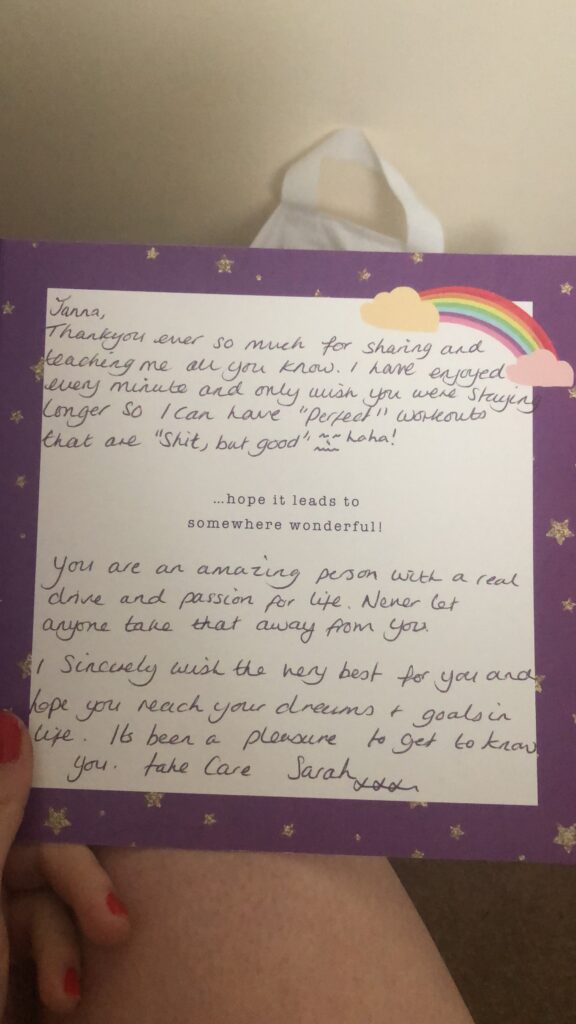 Janna,
Thankyou ever so much for sharing and
teaching me all you know. I have enjoyed
every minute and only wish you were staying
longer so I can have "perfect" workouts
that are "shit, but good" haha!
...hope it leads to
somewhere wonderful!
You are an amazing person with a real
drive and passion for life. Never let
anyone take that away from you.
I sincerely wish the very best for you and
hope you reach your dreams + goals in
life. Its been a pleasure to get to know
you. take Care Sarah xxxx